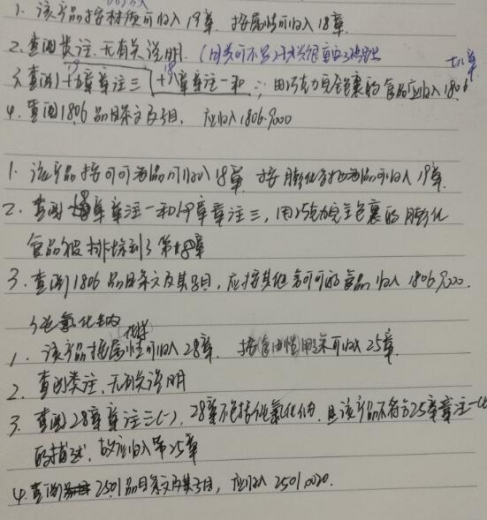 1. 该产品按材质可归入19章. 按属性可归入18章.
2. 查阅类注. 无有关说明.
3. 查阅十九章章注三 十八章章注一和二; 由巧克力完全包裹的食品应归入1806
十八章
4. 查阅1806品目条文及子目, 应归入1806.9000
1. 该产品按可可制品可归入18章. 按膨化食品可归入19章.
2. 查阅18章章注一和19章章注三, 用巧克力完全包裹的膨化
食品被排除到了第18章
3. 查阅1806品目条文及其子目, 应按其他含可可的食品归入1806.9000.
纯氯化钠
1. 该产品按属性可归入28章. 按食用性用来可归入25章.
2. 查阅类注. 无有关说明
3. 查阅28章章注三(一), 28章不包括纯氯化钠, 且该产品不符合25章章注一
的描述, 故应归入第25章
4. 查阅2501品目条文及其子目, 应归入25010020.